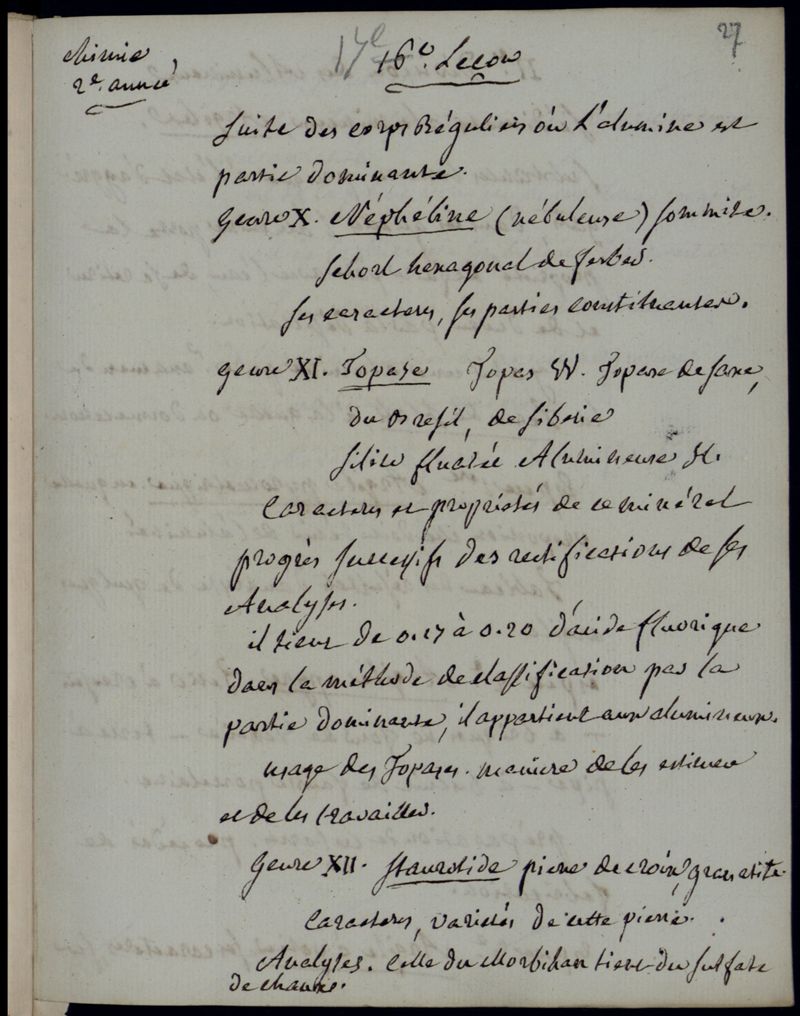 27
chimie
2e année
17e 16e Leçon
Suite des corps Réguliers où L'alumine est
partie dominante.
Genre X. Néphéline (nébuleuse) Sommite.
Schorl hexagonal de ferber.
Ses caracteres, ses parties constituantes.
Genre XI. Topase Topas W. Topase de Saxe,
du Bresil, de Siberie
Silice fluatée Alumineuse H.
Caracteres et propriétés de ce minéral
progrès successifs des rectifications de ses
Analyses.
il tient de 0.17 à 0.20 d'acide fluorique
dans la méthode de classification par la
partie dominante, il appartient aux alumineux.
usage des Topases. maniere de les estimer
et de les travailler.
Genre XII. Staurotide pierre de croix, granatite.
Caracteres, variétés de cette pierre.
Analyses. Celle du Morbihan tient du sulfate
de chaux.